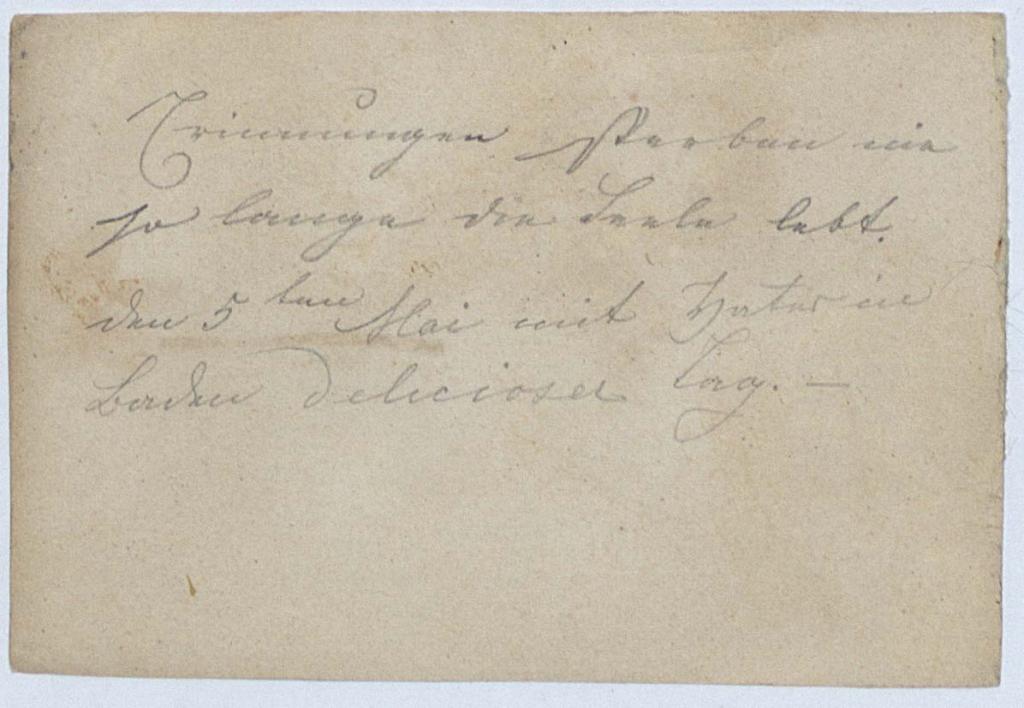 Erinnungen sterben nie
so lange die Seele lebt.
den 5ten Mai mit Vater in
Baden delicioser Tag. —